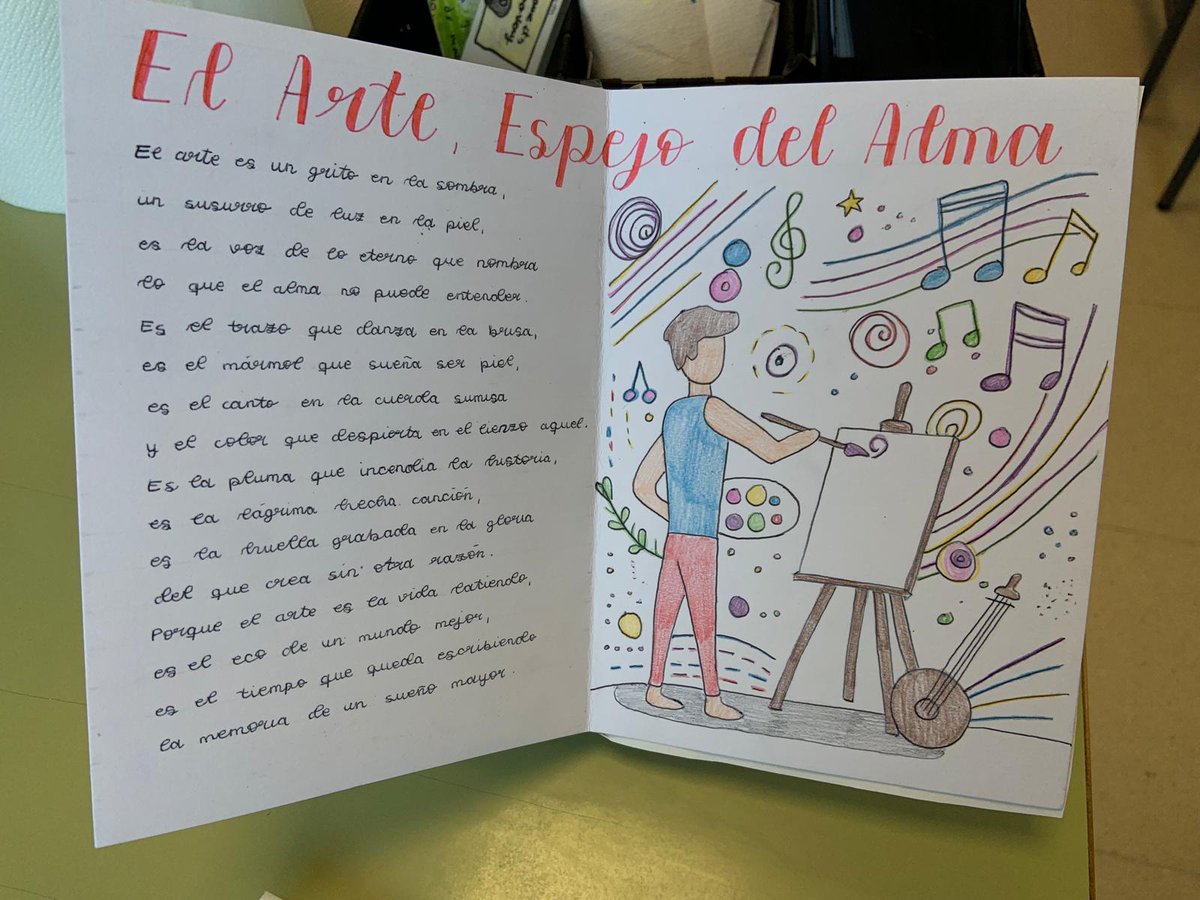 El Arte, Espejo del Alma
El arte es un grito en la sombra,
un susurro de luz en la piel,
es la voz de lo eterno que nombra
lo que el alma no puede entender.
Es el trazo que danza en la brisa,
es el mármol que sueña ser piel,
es el canto en la cuerda sumisa
y el color que despierta en el lienzo aquel.
Es la pluma que incendia la historia,
es la lágrima hecha canción,
es la huella grabada en la gloria
del que crea sin otra razón.
Porque el arte es la vida latiendo,
es el eco de un mundo mejor,
es el tiempo que queda escribiendo
la memoria de un sueño mayor.